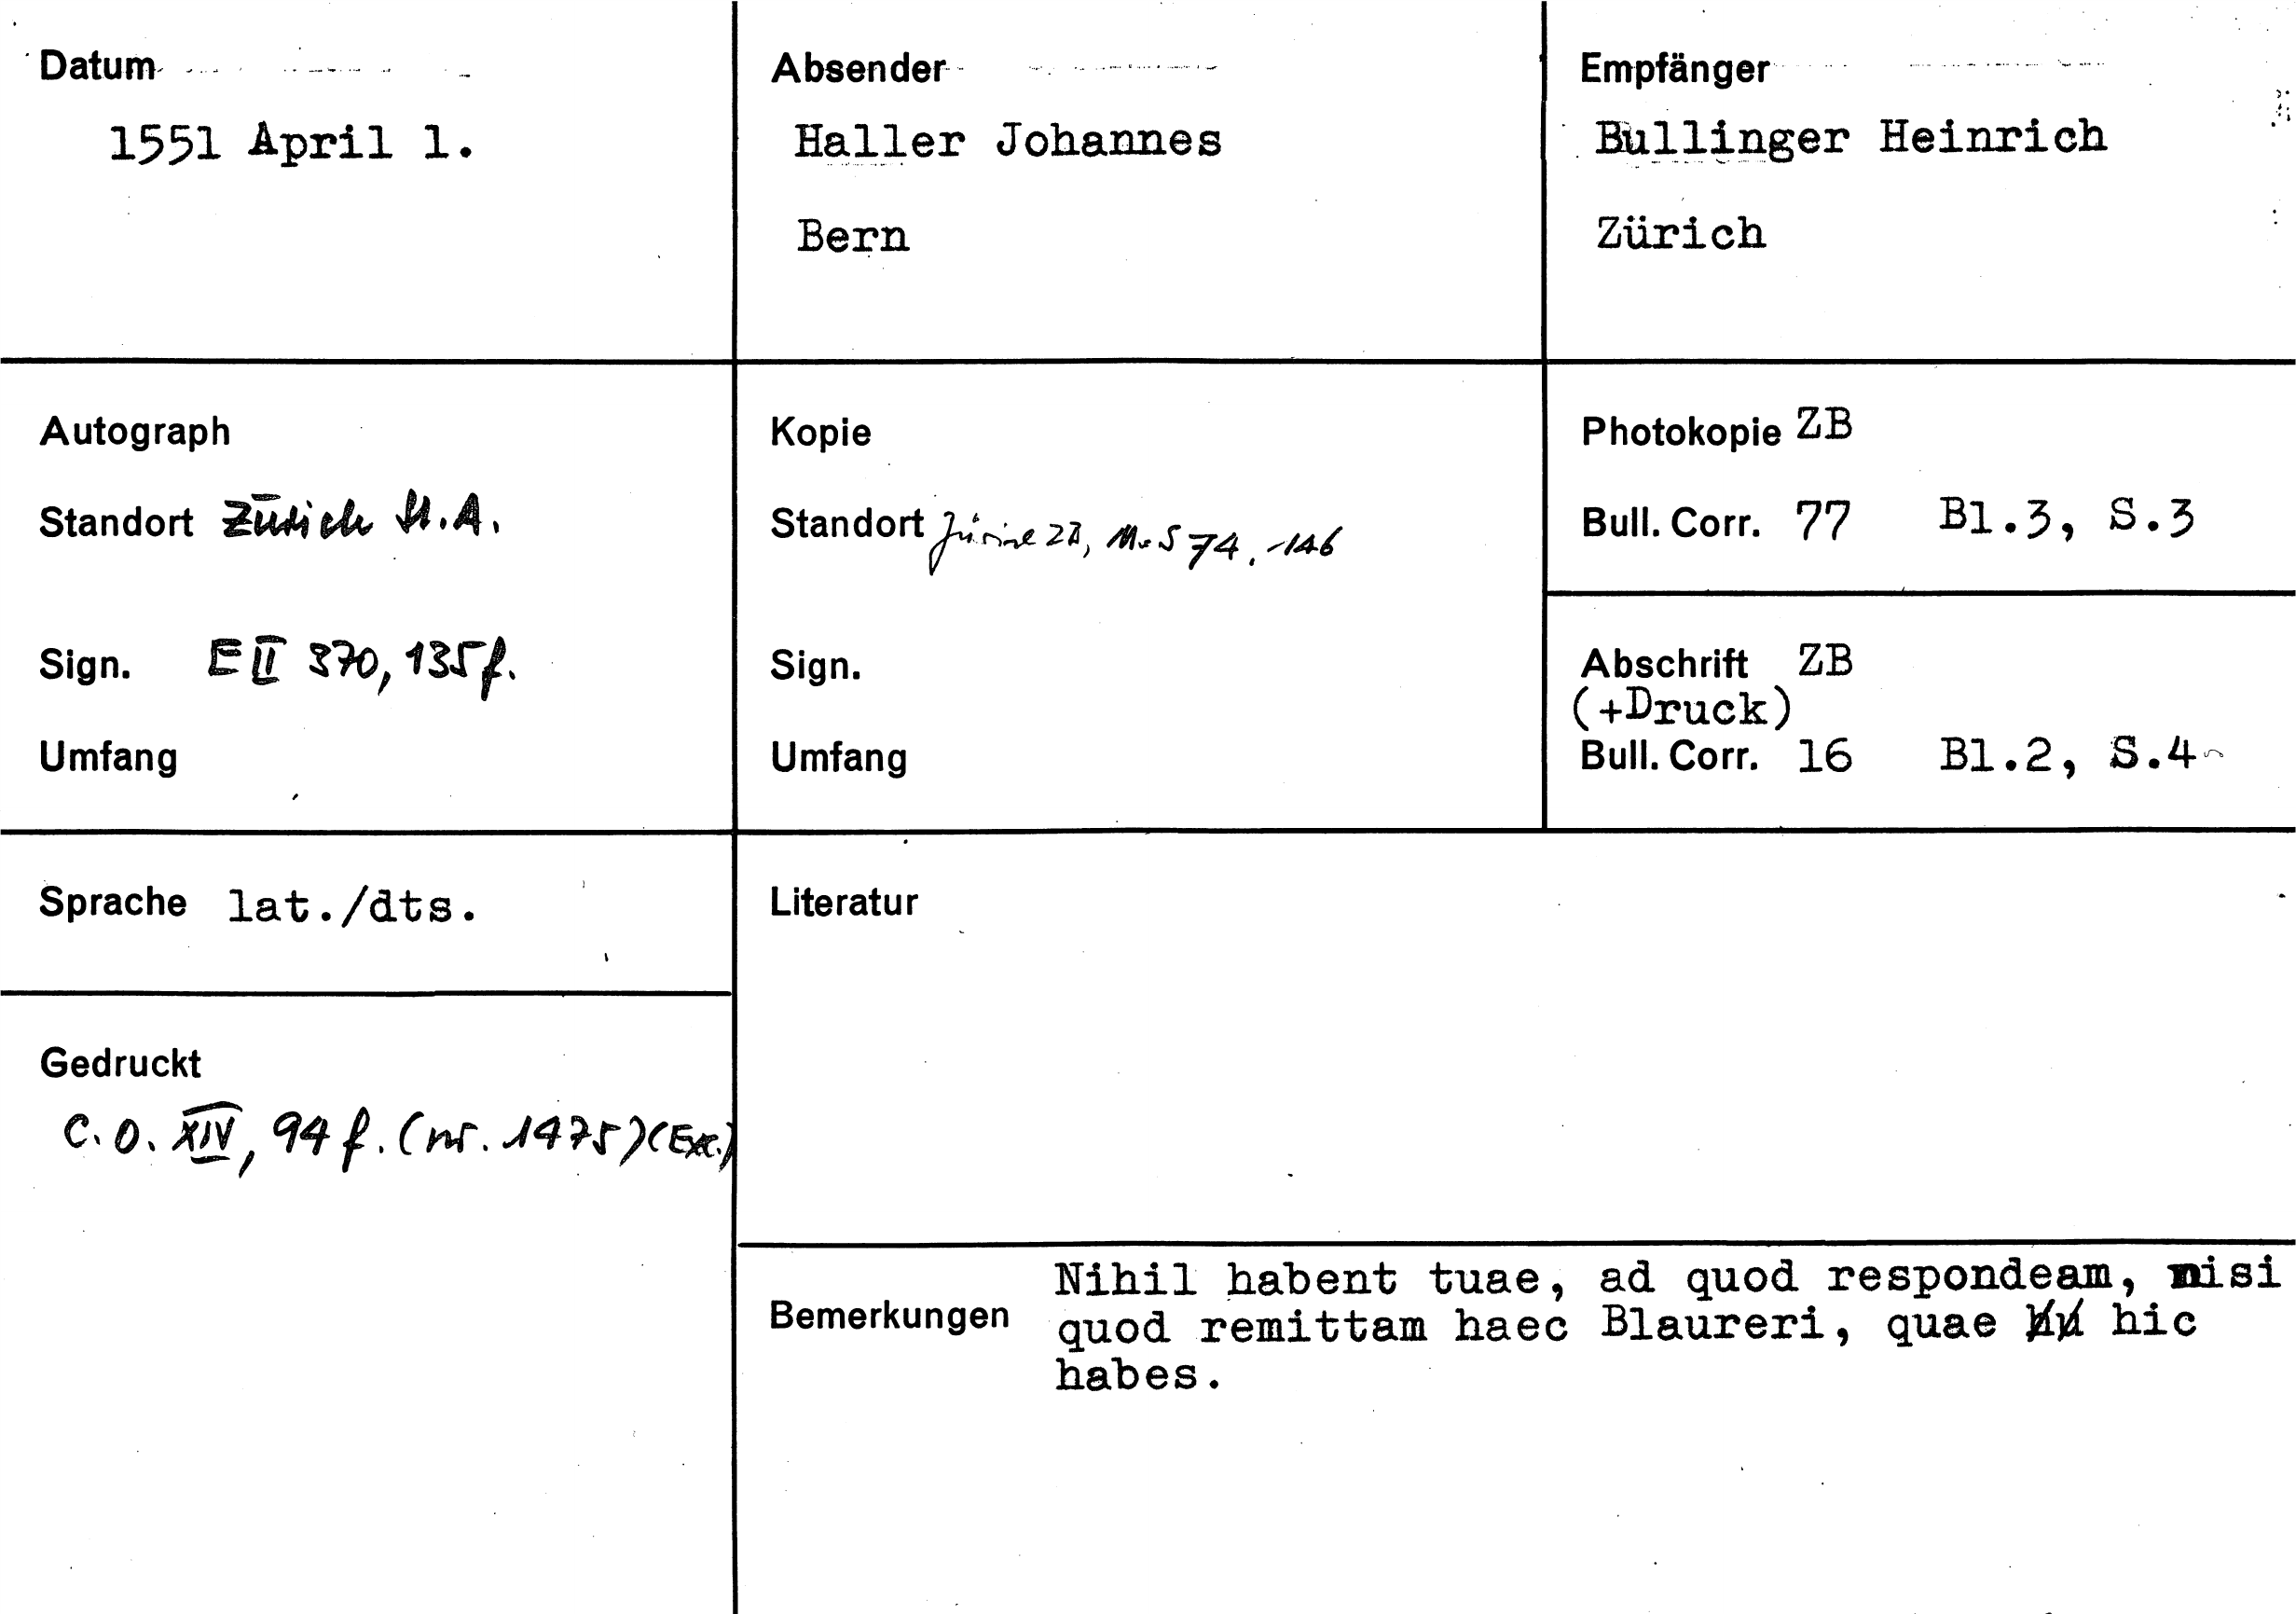 Datum
1551 April 1.
Absender
Haller Johannes
Bern
Empfänger
Bullinger Heinrich
Zürich
Autograph
Standort Zürich St.A.
Sign. E II 370, 135f.
Umfang
Kopie
Standort Zürich ZB, Ms S 74, 146
Sign.
Umfang
Photokopie ZB
Bull. Corr. 77 Bl.3, S.3
Abschrift ZB
(+Druck)
Bull. Corr. 16 Bl.2, S.4
Sprache lat./dts.
Gedruckt
C.O. XIV, 94 f. (nr. 1475) (Exc.)
Literatur
Bemerkungen
Nihil habent tuae, ad quod respondeam, nisi
quod remittam haec Blaureri, quae hic
habes.